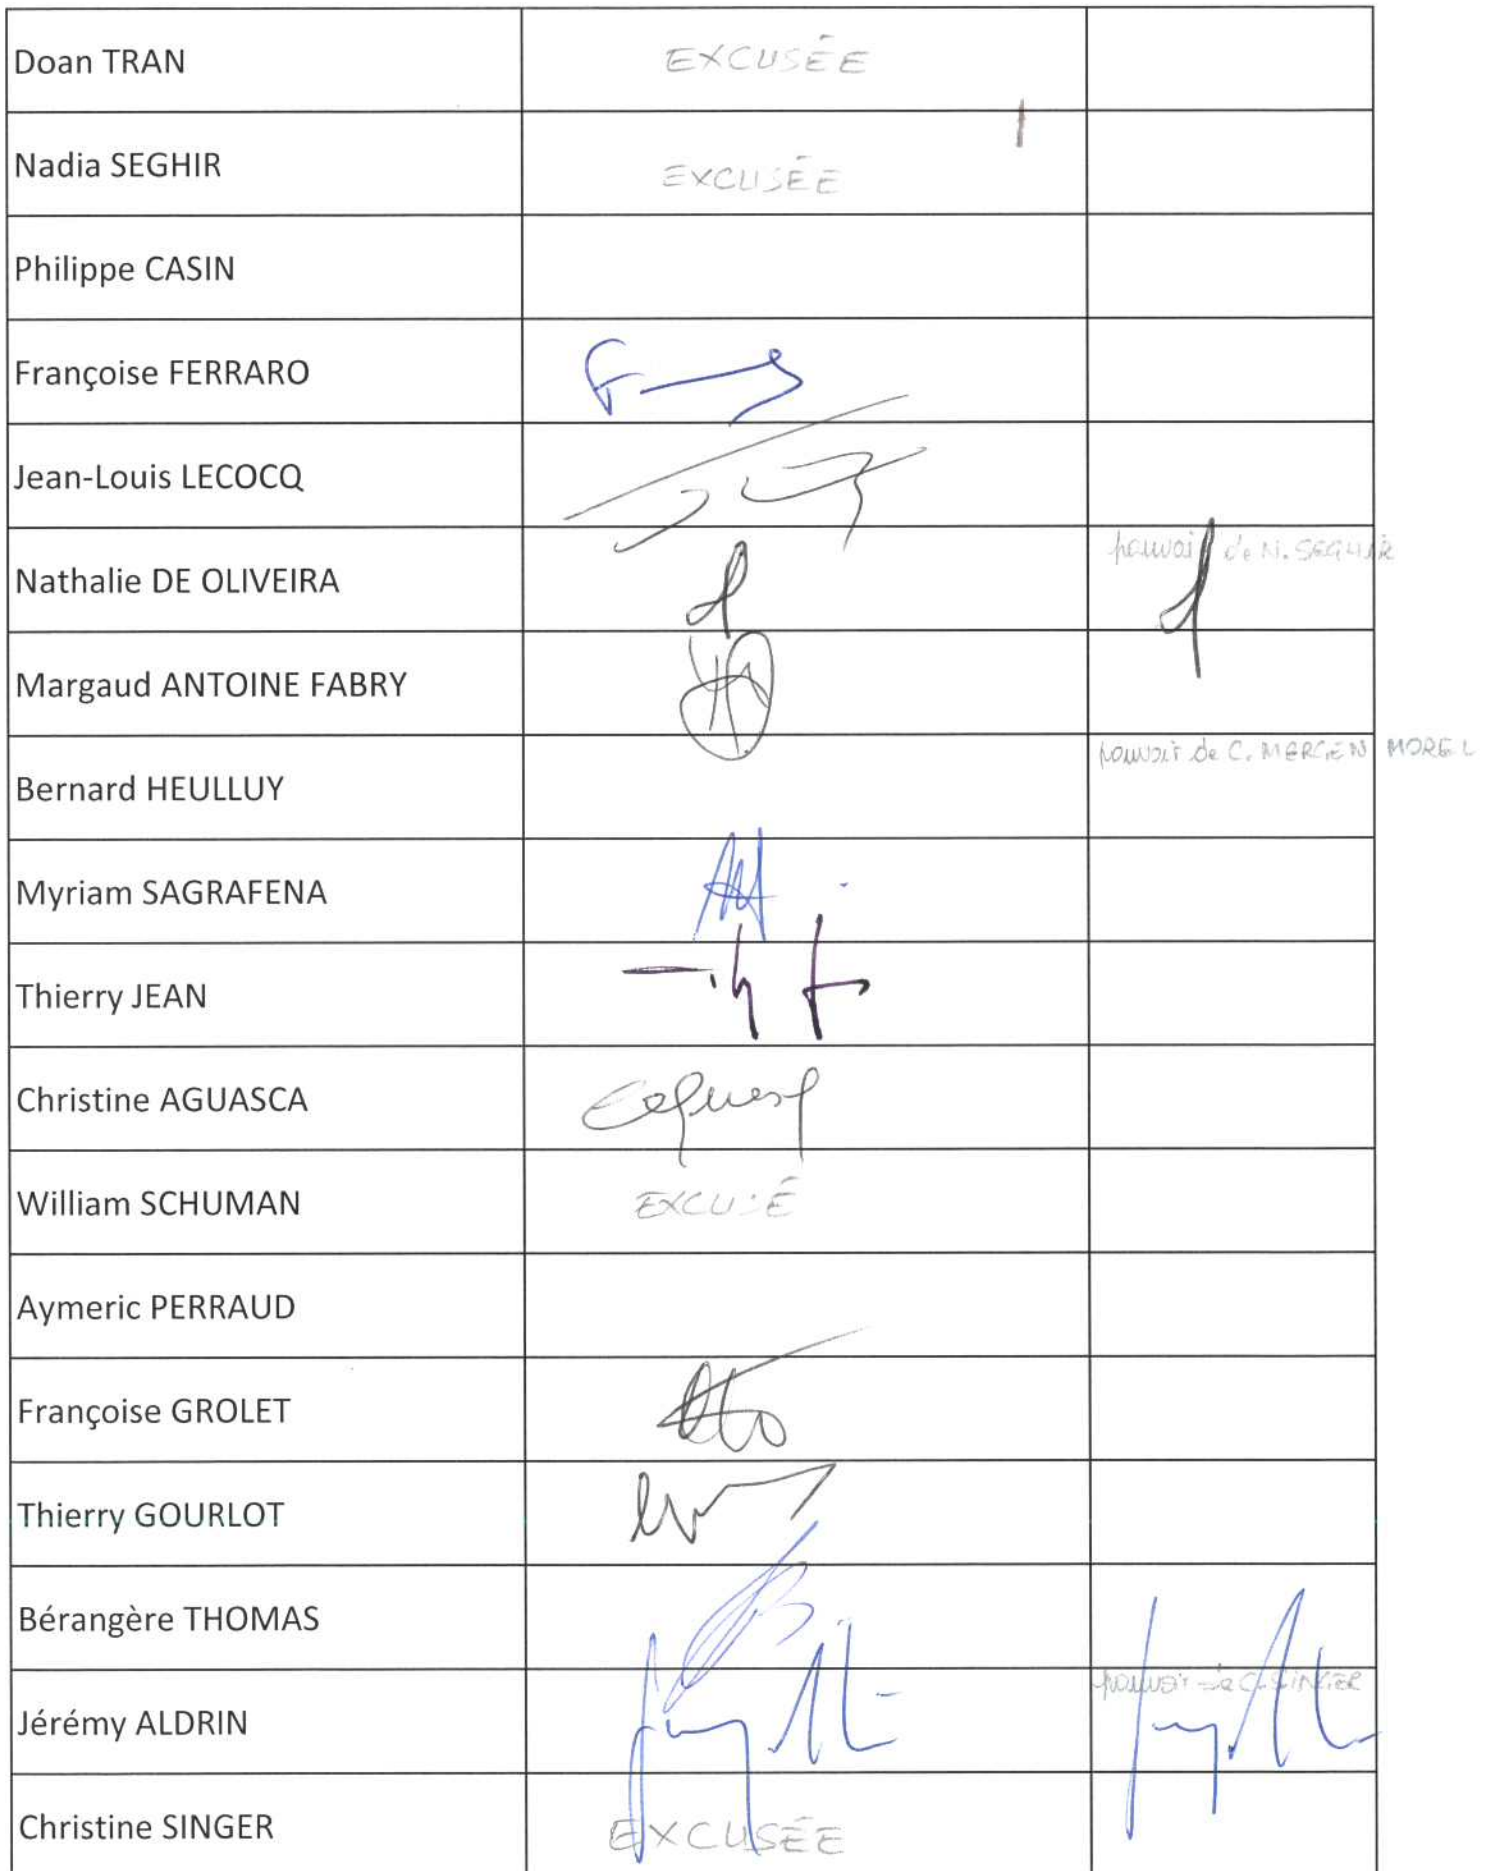 Doan TRAN EXCUSÉE
Nadia SEGHIR EXCUSÉE
Philippe CASIN
Françoise FERRARO
Jean-Louis LECOCQ
Nathalie DE OLIVEIRA pouvoir de N. SEGHIR
Margaud ANTOINE FABRY
Bernard HEULLUY pouvoir de C. MERGEN MOREL
Myriam SAGRAFENA
Thierry JEAN
Christine AGUASCA
William SCHUMAN EXCUSÉ
Aymeric PERRAUD
Françoise GROLET
Thierry GOURLOT
Bérangère THOMAS
Jérémy ALDRIN pouvoir de C. SINGER
Christine SINGER EXCUSÉE